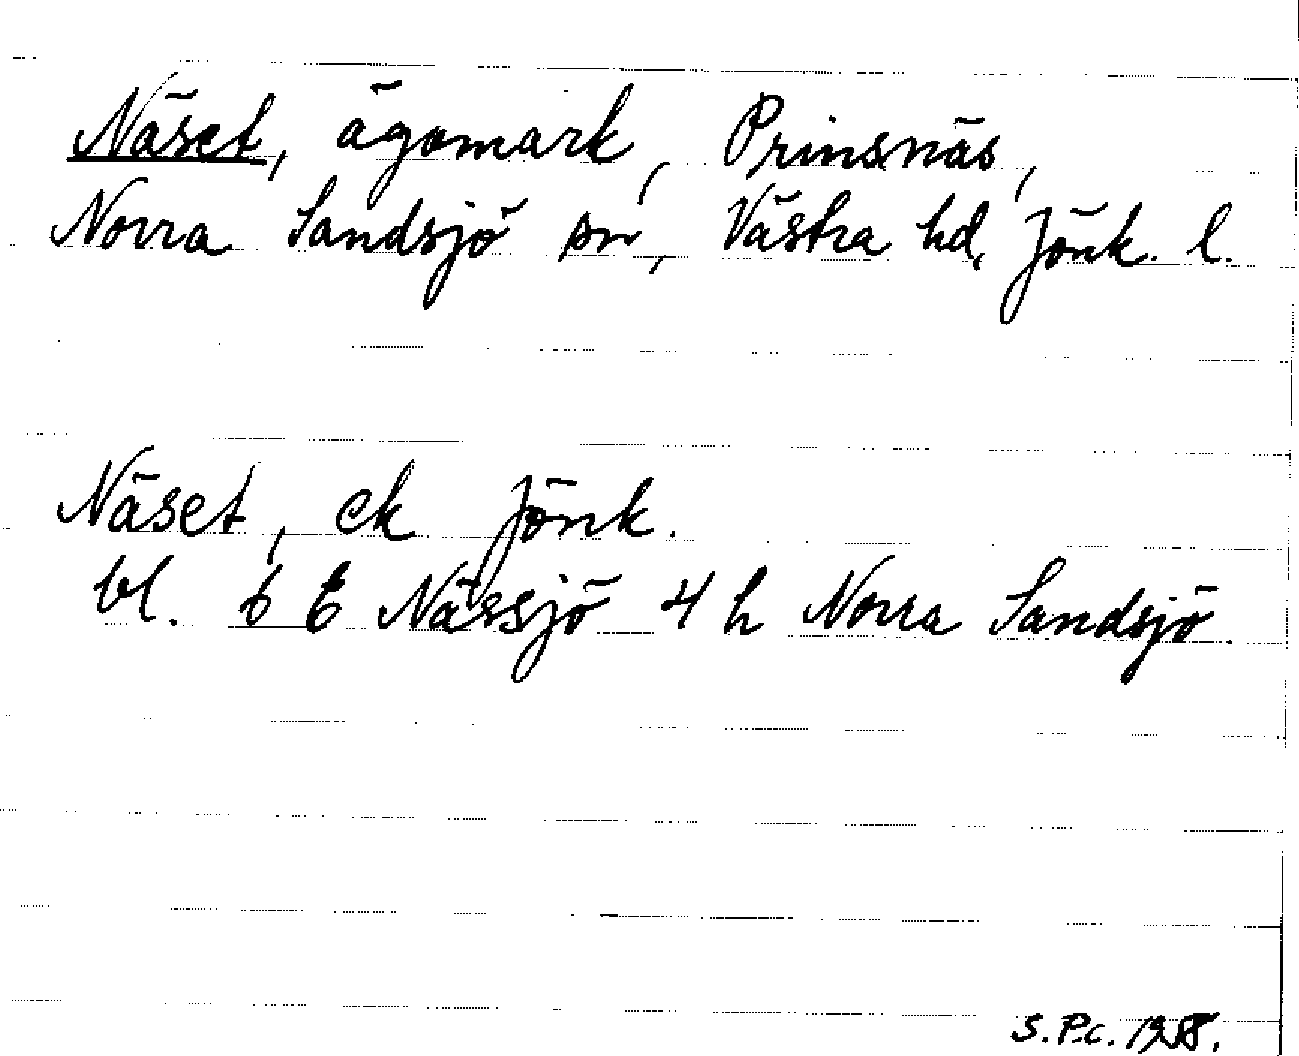 Näset, ägomark, Prinsnäs,
Norra Sandsjö sn, Västra hd, Jönk. l.
Näset, ek Jönk.
bl. 6 E Nässjö 4 h Norra Sandsjö.
S.P.c. 1958.